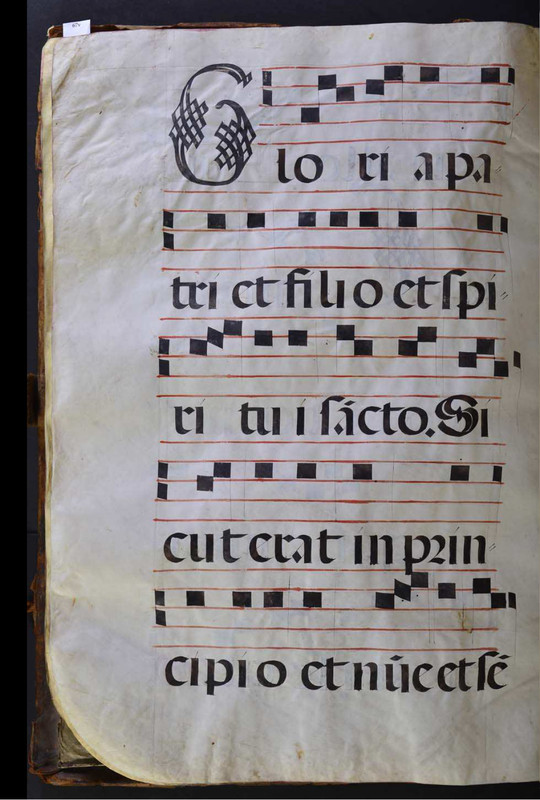 Glo ri a pa
tri et filio et spi
ri tu i sācto. Si
cut erat in prin
cipio et nūc et sē